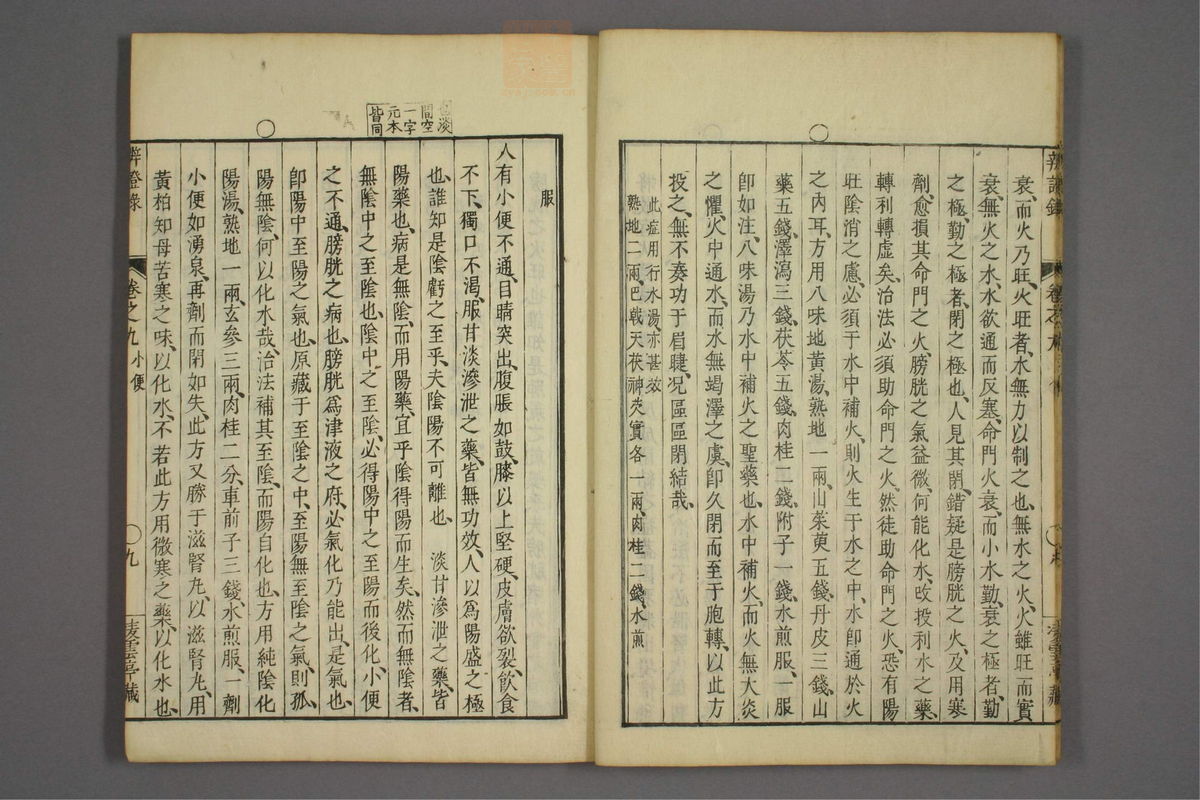 衰、而火乃旺、火旺者、水無力以制之也、無水之火、火雖旺而實
衰、無火之水、水欲通而反塞、命門火衰、而小水勤、衰之極者、勤
之極、勤之極者、閉之極也、人見其閉、錯疑是膀胱之火、及用寒
劑、愈損其命門之火、膀胱之氣益微、何能化水、攺投利水之藥、
轉利轉虛矣、治法必須助命門之火、然徒助命門之火、恐有陽
旺陰消之慮、必須于水中補火、則火生于水之中、水卽通於火
之內耳、方用八味地黃湯、熟地一兩、山茱萸五錢、丹皮三錢、山
藥五錢、澤瀉三錢、茯苓五錢、肉桂二錢、附子一錢、水煎服、一服
卽如注、八味湯乃水中補火之聖藥也、水中補火、而火無大炎
之懼、火中通水、而水無竭澤之虞、卽久閉而至于胞轉、以此方
投之、無不奏功于眉睫、况區區閉結哉、
此症用行水湯、亦甚效
熟地二兩、巴戟天茯神芡實各一兩、肉桂二錢、水煎
服
人有小便不通、目睛突出、腹脹如鼓、膝以上堅硬、皮膚欲裂、飮食
不下、獨口不渴、服甘淡滲泄之藥、皆無功效、人以爲陽盛之極
也、誰知是陰虧之至乎、夫陰陽不可離也、 淡甘滲泄之藥、皆
陽藥也、病是無陰、而用陽藥、宜乎陰得陽而生矣、然而無陰者、
無陰中之至陰也、陰中之至陰、必得陽中之至陽而後化、小便
之不通、膀胱之病也、膀胱爲津液之府、必氣化乃能出、是氣也
卽陽中至陽之氣也、原藏于至陰之中、至陽無至陰之氣、則孤
陽無陰、何以化水哉、治法補其至陰、而陽自化也、方用純陰化
陽湯、熟地一兩、玄參三兩、肉桂二分、車前子三錢、水煎服、一劑
小便如湧泉、再劑而閉如失、此方又勝于滋腎丸、以滋腎丸、用
黃柏知母苦寒之味、以化水、不若此方用微寒之藥、以化水也、
也淡
間空
一字
元本
皆同
辨證錄
卷之九 小便
九